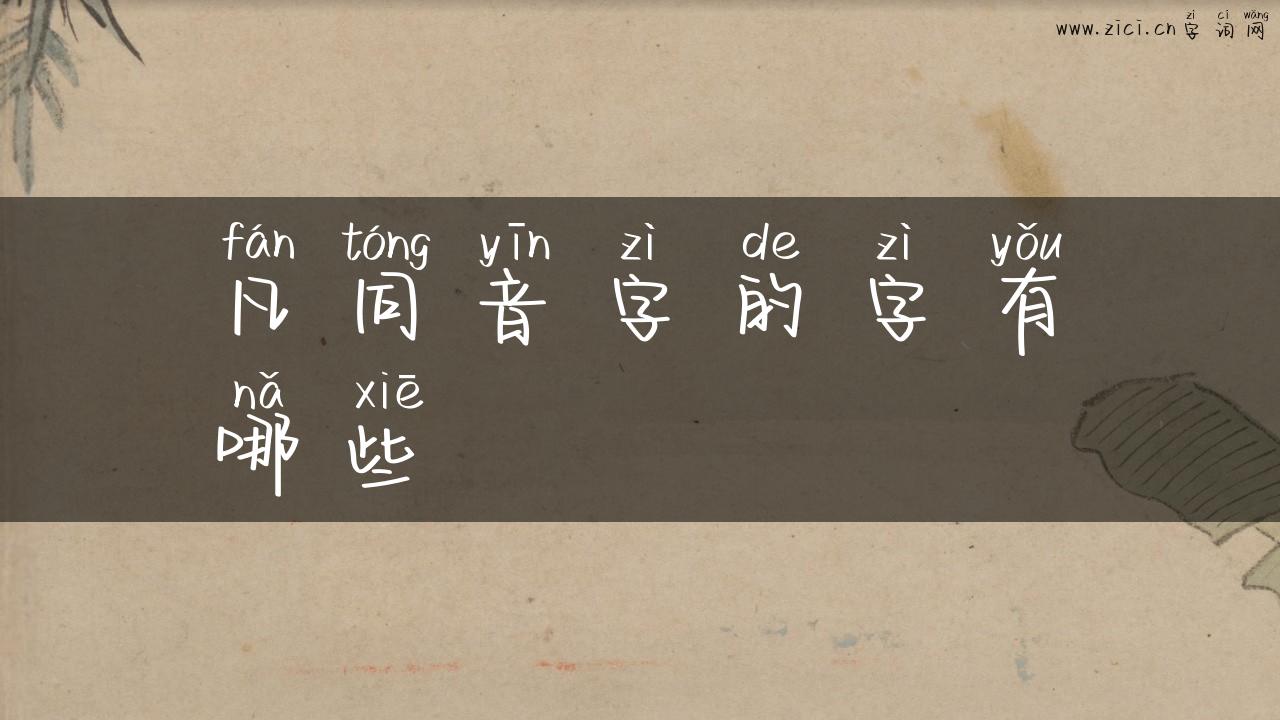 zì cí wǎng
www.zici.cn 字词网
fán tóng yīn zì de zì yǒu
凡同音字的字有
nǎ xiē
哪些